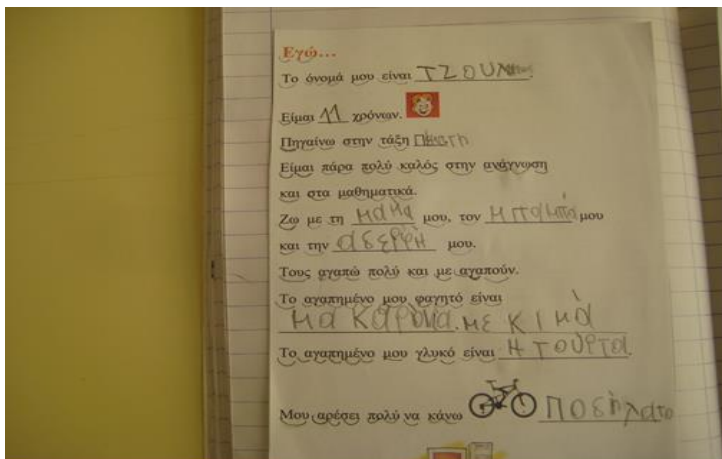 Εγώ...
Το όνομά μου είναι
Είμαι 11 χρόνων.
Πηγαίνω στην τάξη
Είμαι πάρα πολύ καλός στην ανάγνωση
και στα μαθηματικά.
Ζω με τη μαμά μου, τον μπαμπά μου
και την αδερφή μου.
Τους αγαπώ πολύ και με αγαπούν.
Το αγαπημένο μου φαγητό είναι
με κιμά
Το αγαπημένο μου γλυκό είναι η τούρτα.
Μου αρέσει πολύ να κάνω ποδήλατο